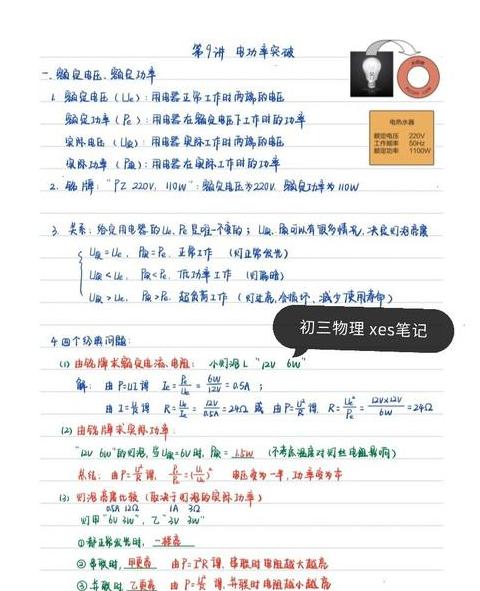 第9讲 电功率突破
一、额定电压、额定功率
1. 额定电压（Ue）：用电器正常工作时两端的电压
额定功率（Pe）：用电器在额定电压下工作时的功率
实际电压（U实）：用电器实际工作时两端的电压
实际功率（P实）：用电器在实际工作时的功率
电热水器
额定电压 220V
工作频率 50Hz
额定功率 1100W
2. 铭牌："PZ 220V, 110W"：额定电压为220V 额定功率为110W
3. 关系：给定用电器的Ue、Pe是唯一不变的；U实、P实可以有很多情况，决定灯泡亮度
U实=Ue, P实=Pe, 正常工作 （灯正常发光）
U实<Ue, P实<Pe, 低功率工作 （灯偏暗）
U实>Ue, P实>Pe, 超负荷工作 （灯过亮，会损坏，减少使用寿命）
初三物理 xes笔记
4. 四个经典问题：
(1) 由铭牌求额定电流、电阻： 小灯泡L "12V 6W"
解： 由P=UI得 Ie=Pe/Ue=6W/12V=0.5A；
由I=U/R得 R=Ue/Ie=12V/0.5A=24Ω 或 由P=U²/R得 R=Ue²/Pe=12V×12V/6W=24Ω
(2) 由铭牌求实际功率：
"12V 6W"的灯泡，当U实=6V时，P实=1.5W （不考虑温度对灯丝电阻影响）
总结： 由P=U²/R得，
电压变为一半，功率变为¼
(3) 灯泡亮度比较（取决于灯泡的实际功率）
0.5A 12Ω 1A 3Ω
灯甲"6V 3W"，乙"3V 3W"
①都正常发光时，一样亮
②串联时，甲更亮 由P=I²R得，串联时电阻越大越亮
③并联时，乙更亮 由P=U²/R得，并联时电阻越小越亮